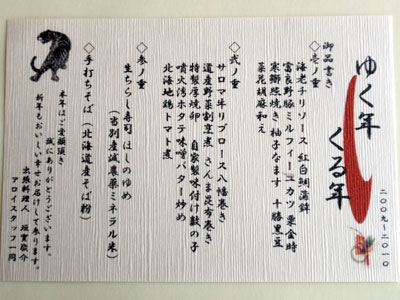 ゆく年
くる年
二〇〇九〜二〇一〇
御品書き
◇壱ノ重
海老チリソース 紅白鯛蒲鉾
富良野豚ミルフィーユカツ 栗金時
寒鰤照焼き 柚子なます 十勝黒豆
菜花胡麻和え
◇弐ノ重
サロマ牛リブロース八幡巻き
道産野菜割烹煮 さんま昆布巻き
特製厚焼卵 自家製味付け数の子
噴火湾ホタテ味噌バター炒め
北海地鶏トマト煮
◇参ノ重
生ちらし寿司 はしのゆめ
(当別産減農薬ミネラル米)
◇手打ちそば(北海道産そば粉)
本年はご愛顧頂き
誠にありがとうございます。
新年もおいしい幸せお届けして参ります。
出張料理人
アロイスタッフ一同